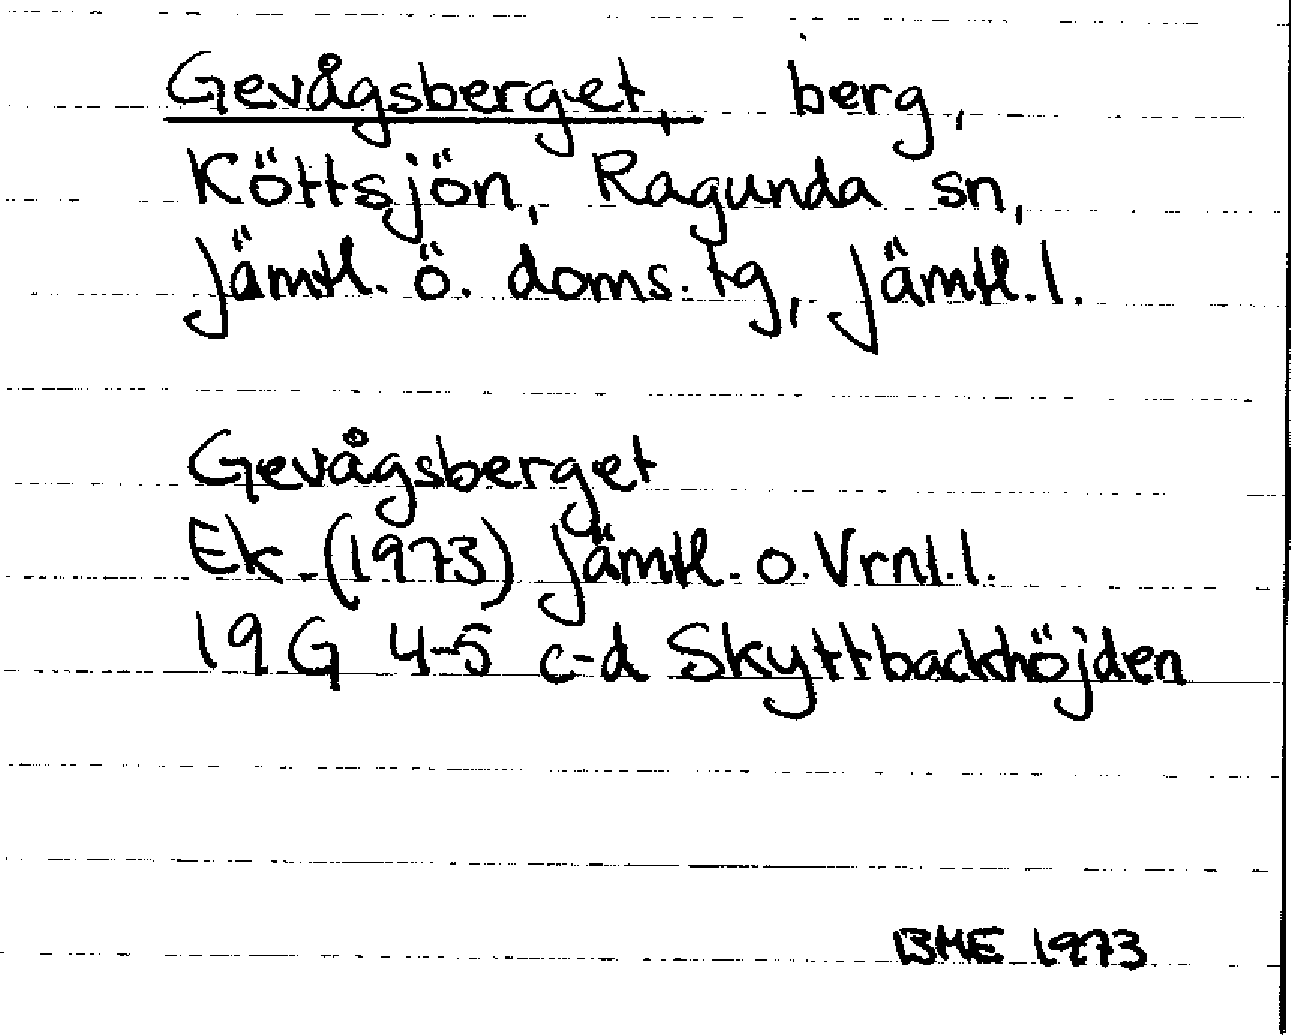 Gevågsberget, berg,
Köttsjön, Ragunda sn,
Jämtl. ö. doms. tg, Jämtl. l.
Gevågsberget
Ek. (1973) Jämtl. o. Vrnl. l.
19 G 4-5 c-d Skyttbackhöjden
BME 1973